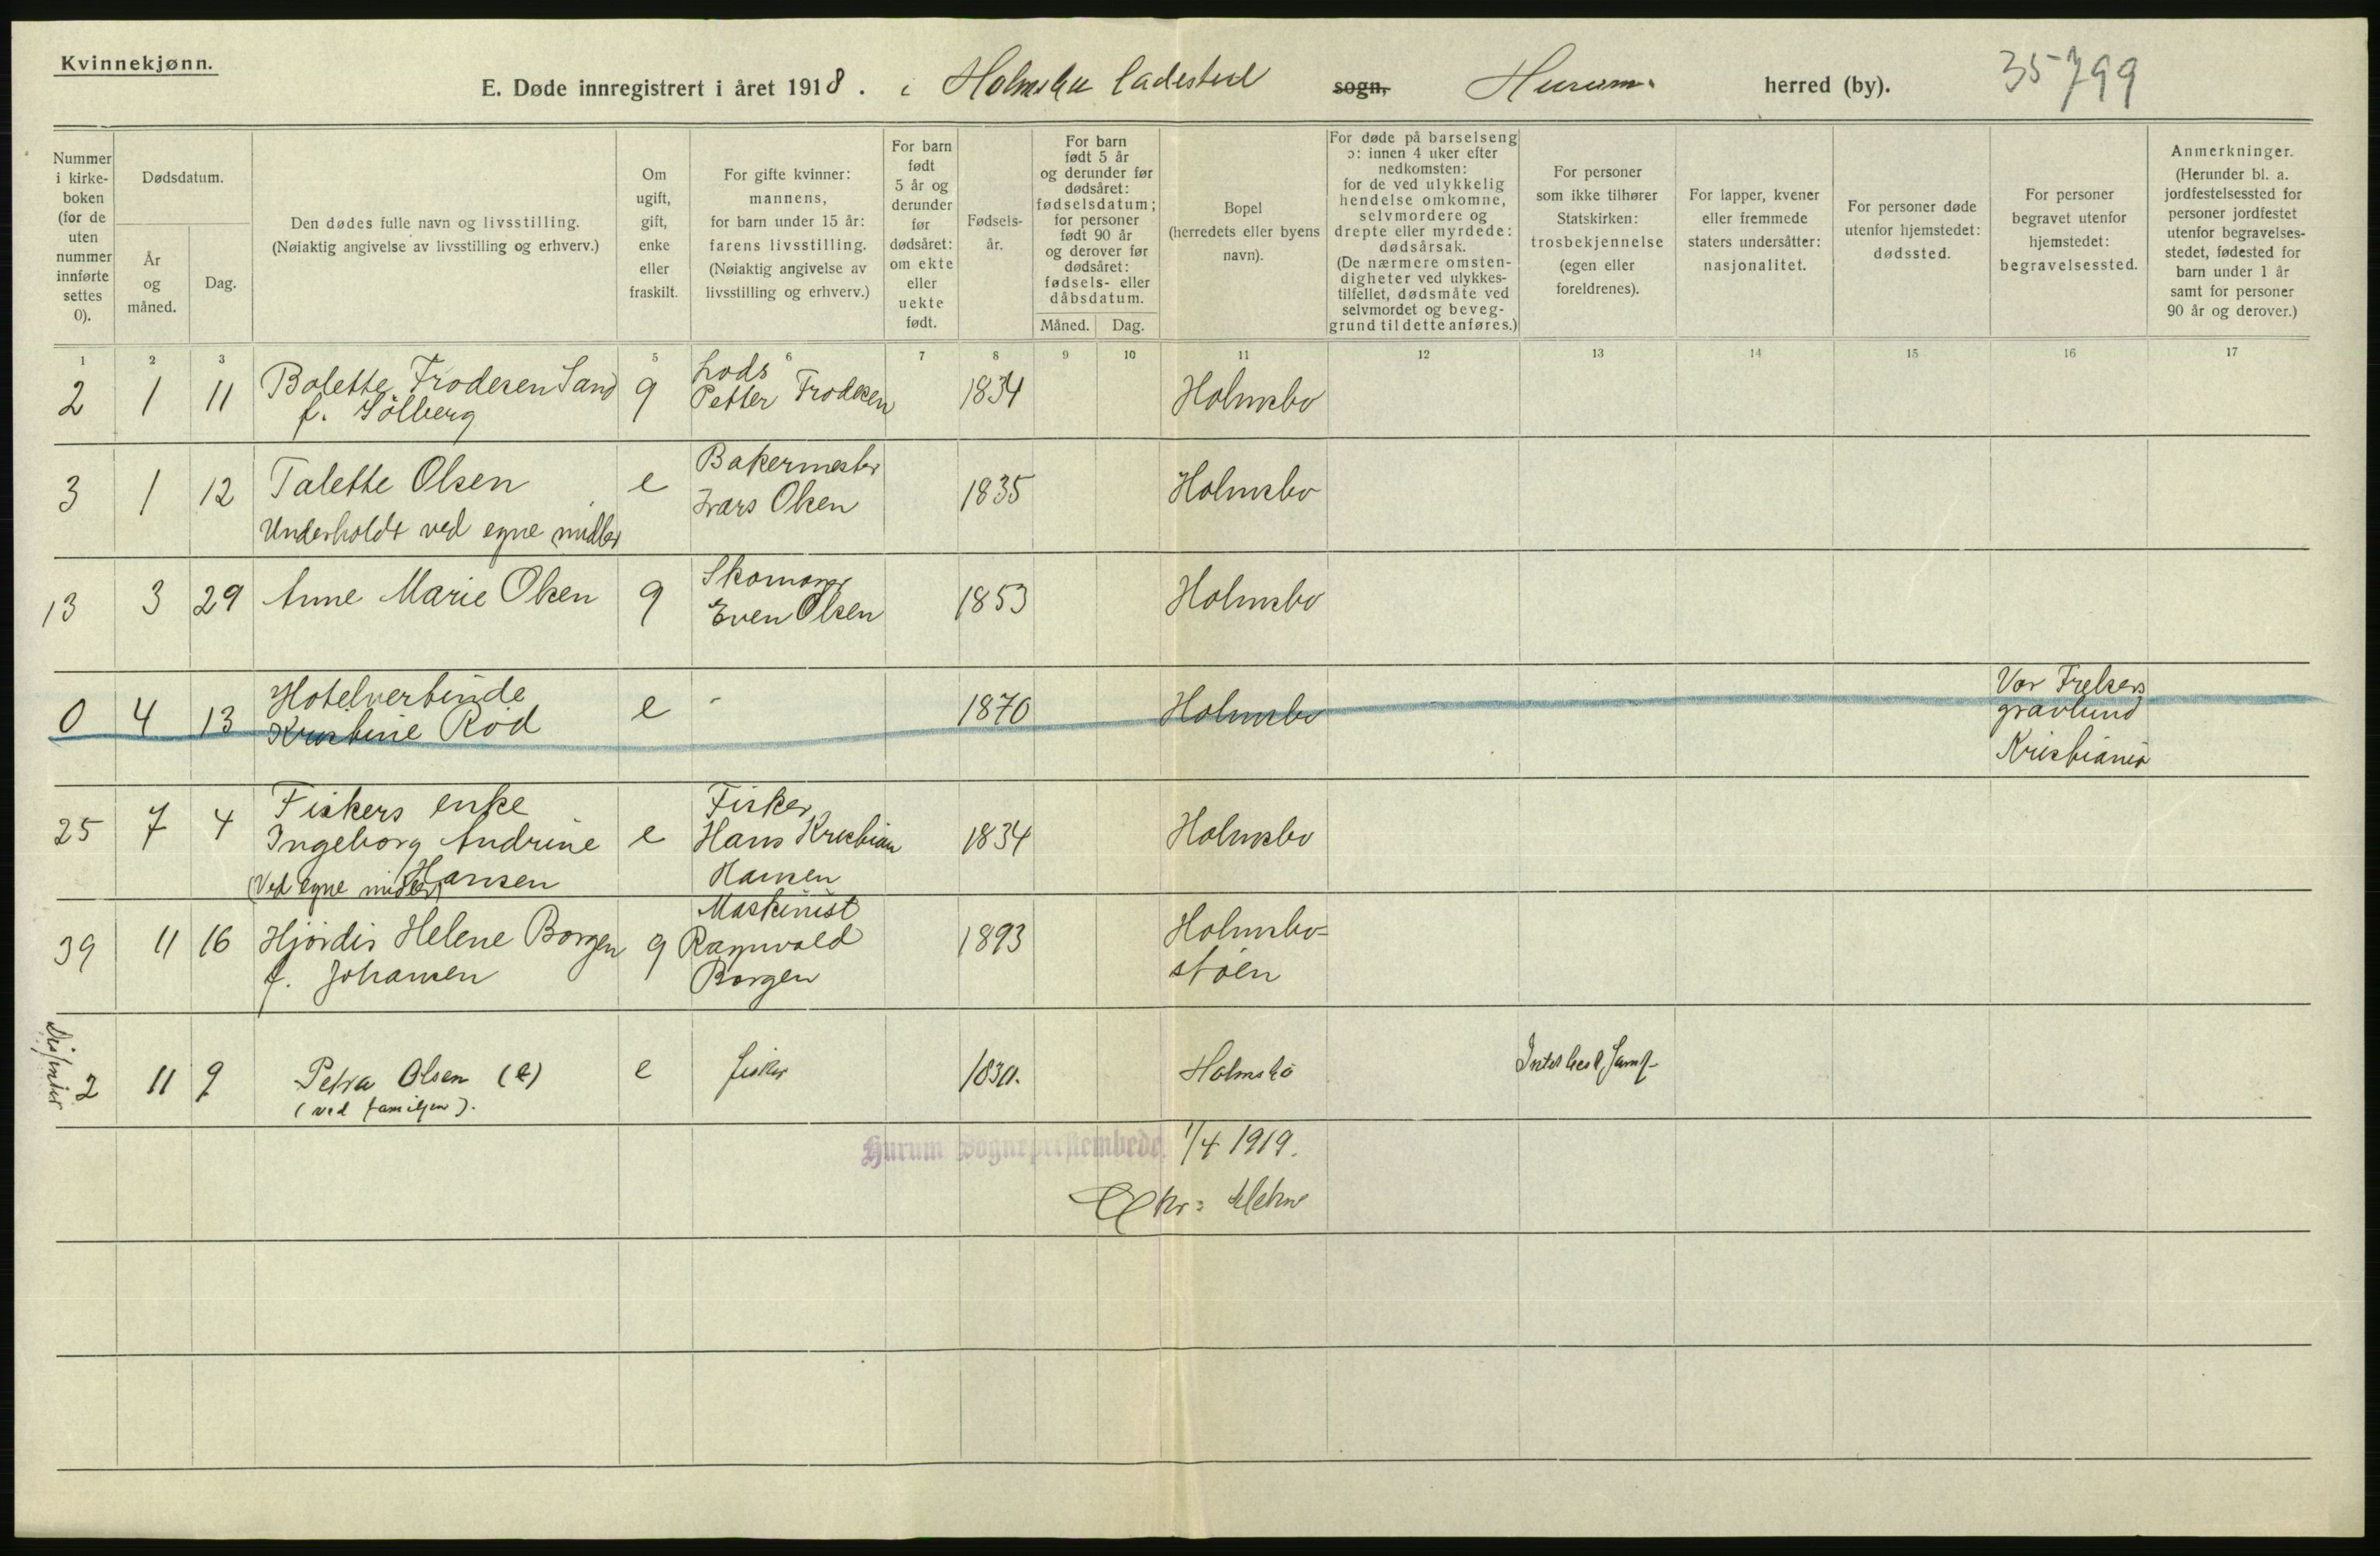 Kvinnekjønn.
E. Døde innregistrert i året 1918. i Holmsbu ladested sogn, Hurum. herred (by). 35799
Nummer i kirke-boken (for de uten nummer innførte settes 0).
Dødsdatum.
År og måned.
Dag.
Den dødes fulle navn og livsstilling.
(Nøiaktig angivelse av livsstilling og erhverv.)
Om ugift, gift, enke eller fraskilt.
For gifte kvinner: mannens, for barn under 15 år: farens livsstilling. (Nøiaktig angivelse av livsstilling og erhverv.)
For barn født 5 år og derunder før dødsåret: om ekte eller uekte født.
Fødsels-år.
For barn født 5 år og derunder før dødsåret: fødselsdatum; for personer født 90 år og derover før dødsåret: fødsels- eller dåbsdatum.
Måned. Dag.
Bopel (herredets eller byens navn).
For døde på barselseng ɔ: innen 4 uker efter nedkomsten: for de ved ulykkelig hendelse omkomne, selvmordere og drepte eller myrdede: dødsårsak. (De nærmere omsten-digheter ved ulykkes-tilfellet, dødsmåte ved selvmordet og beveg-grund til dette anføres.)
For personer som ikke tilhører Statskirken: trosbekjennelse (egen eller foreldrenes).
For lapper, kvener eller fremmede staters undersåtter: nasjonalitet.
For personer døde utenfor hjemstedet: dødssted.
For personer begravet utenfor hjemstedet: begravelsessted.
Anmerkninger. (Herunder bl. a. jordfestelsessted for personer jordfestet utenfor begravelses-stedet, fødested for barn under 1 år samt for personer 90 år og derover.)
1 2 3 5 6 7 8 9 10 11 12 13 14 15 16 17
2 1 11 Bolette Frodesen Sand g Lods 1834 Holmsbo
f. Sølberg Petter Frodesen
3 1 12 Talette Olsen e Bakermester 1835 Holmsbo
Underholdt ved egne midler Lars Olsen
13 3 29 Anne Marie Olsen g Skomager 1853 Holmsbo
Even Olsen
0 4 13 Hotelvertinde e - 1870 Holmsbo Vor Frelsers
Kristine Rød gravlund
Kristiania
25 7 4 Fiskers enke e Fisker 1834 Holmsbo
Ingeborg Andrine Hans Kristian
(Ved egne midler) Hansen Hansen
39 11 16 Hjørdis Helene Borgen g Maskinist 1893 Holmsbo-
f. Johansen Ragnvald støen
Borgen
2 11 9 Petra Olsen (e) e fisker 1830. Holmsbo
(ved familjen).
Hurum Sogneprestembede. 1/4 1919.